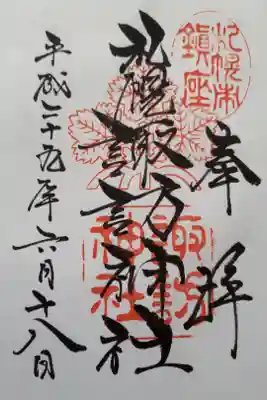 札幌市
鎮座
奉拝
札幌諏訪神社
諏訪
神社
平成二十九年六月十八日